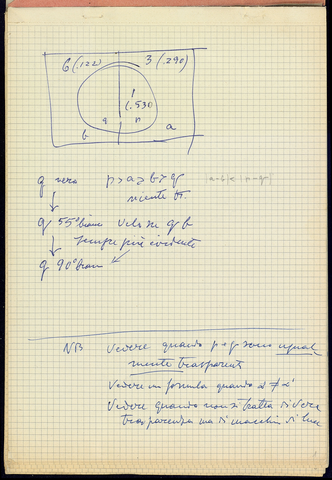 6 (.122) 3 (.290)
1
(.530)
q p
b a
q zero p > a ≥ b > q
niente tr.
q 55° bianco velo se q b
sempre più evidente
q 90° bianco
NB Vedere quando p e q sono egual
mente trasparenti
Vedere in formula quando α ≠ α'
Vedere quando non si tratta di vera
trasparenza ma di macchie di luce